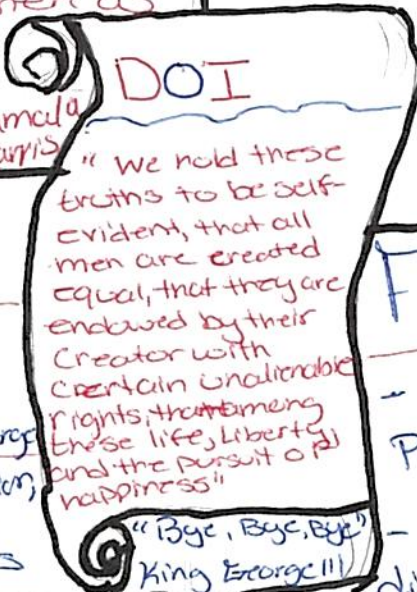 DOI
"We hold these
truths to be self-
evident, that all
men are created
equal, that they are
endowed by their
Creator with
certain unalienable
rights, that among
these life, Liberty,
and the pursuit of
happiness"
"Bye, Bye, Bye"
King George!!!